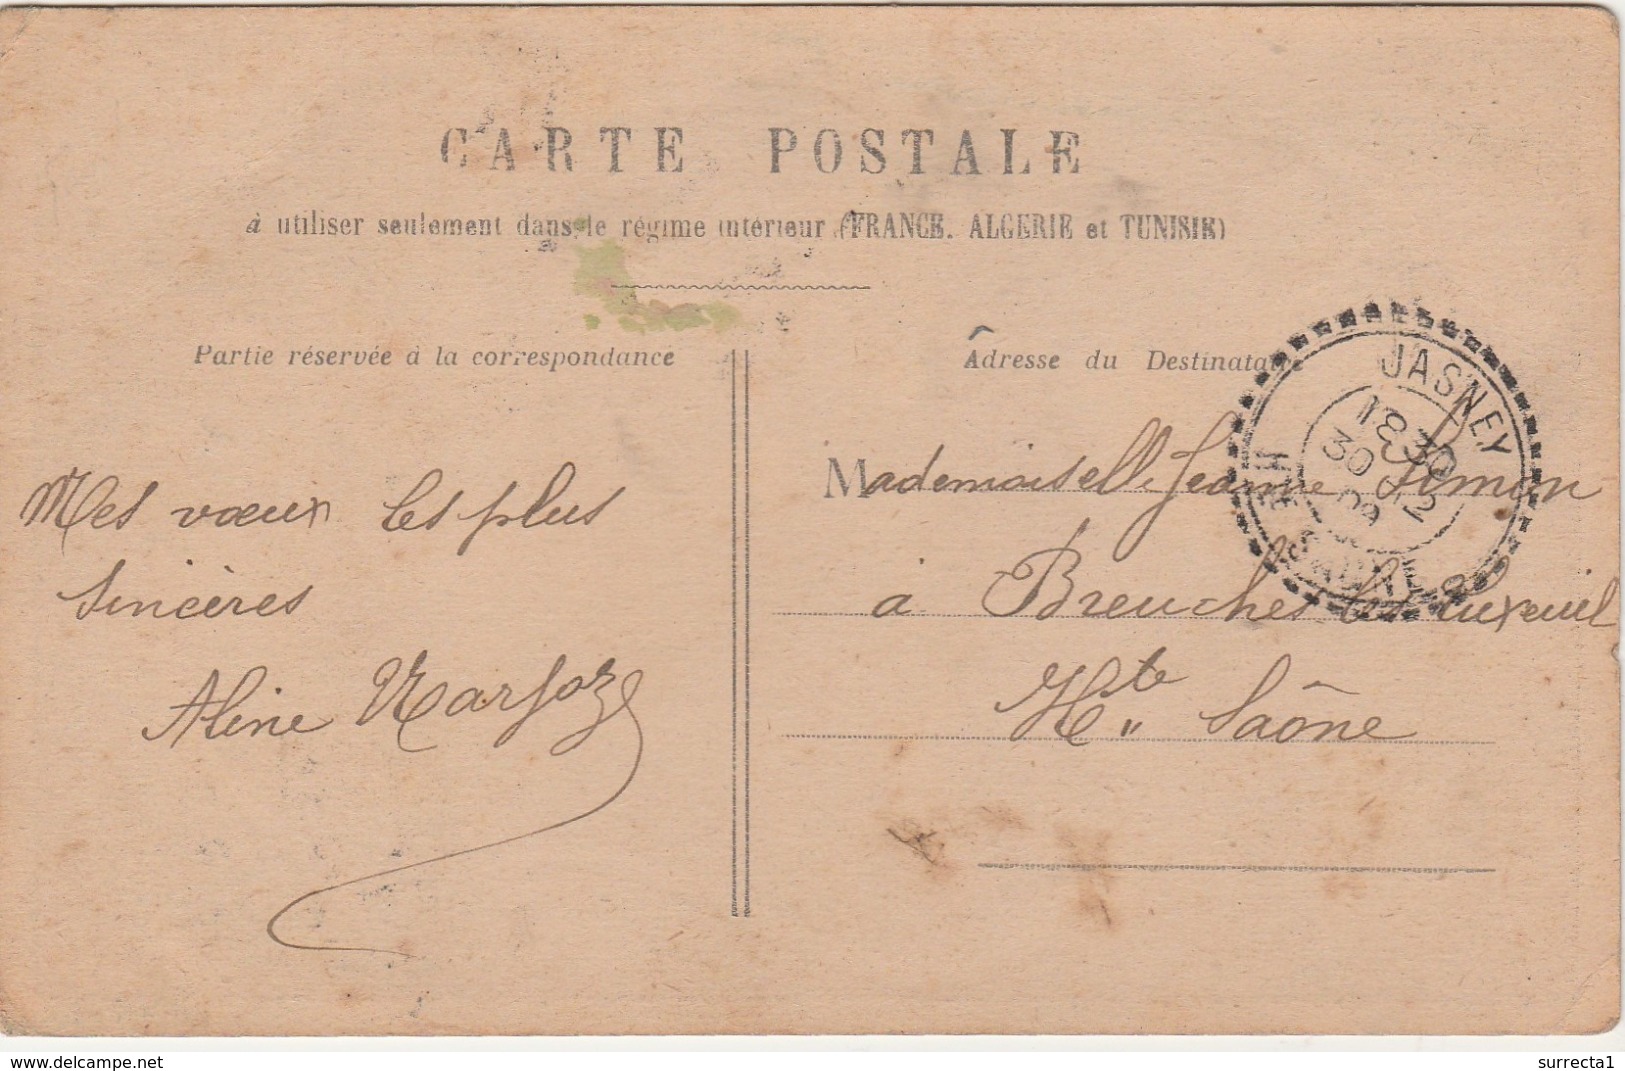 CARTE POSTALE
à utiliser seulement dans le régime intérieur (FRANCE. ALGERIE et TUNISIE)
Partie réservée à la correspondance
Adresse du Destinataire
Mes vœux les plus
sincères
Aline
Mademoiselle Jeanne Simon
à Breuches les Luxeuil
Hte Saône
JASNEY
18 30
30 12
09
HTE SAONE
www.delcampe.net
surrecta1